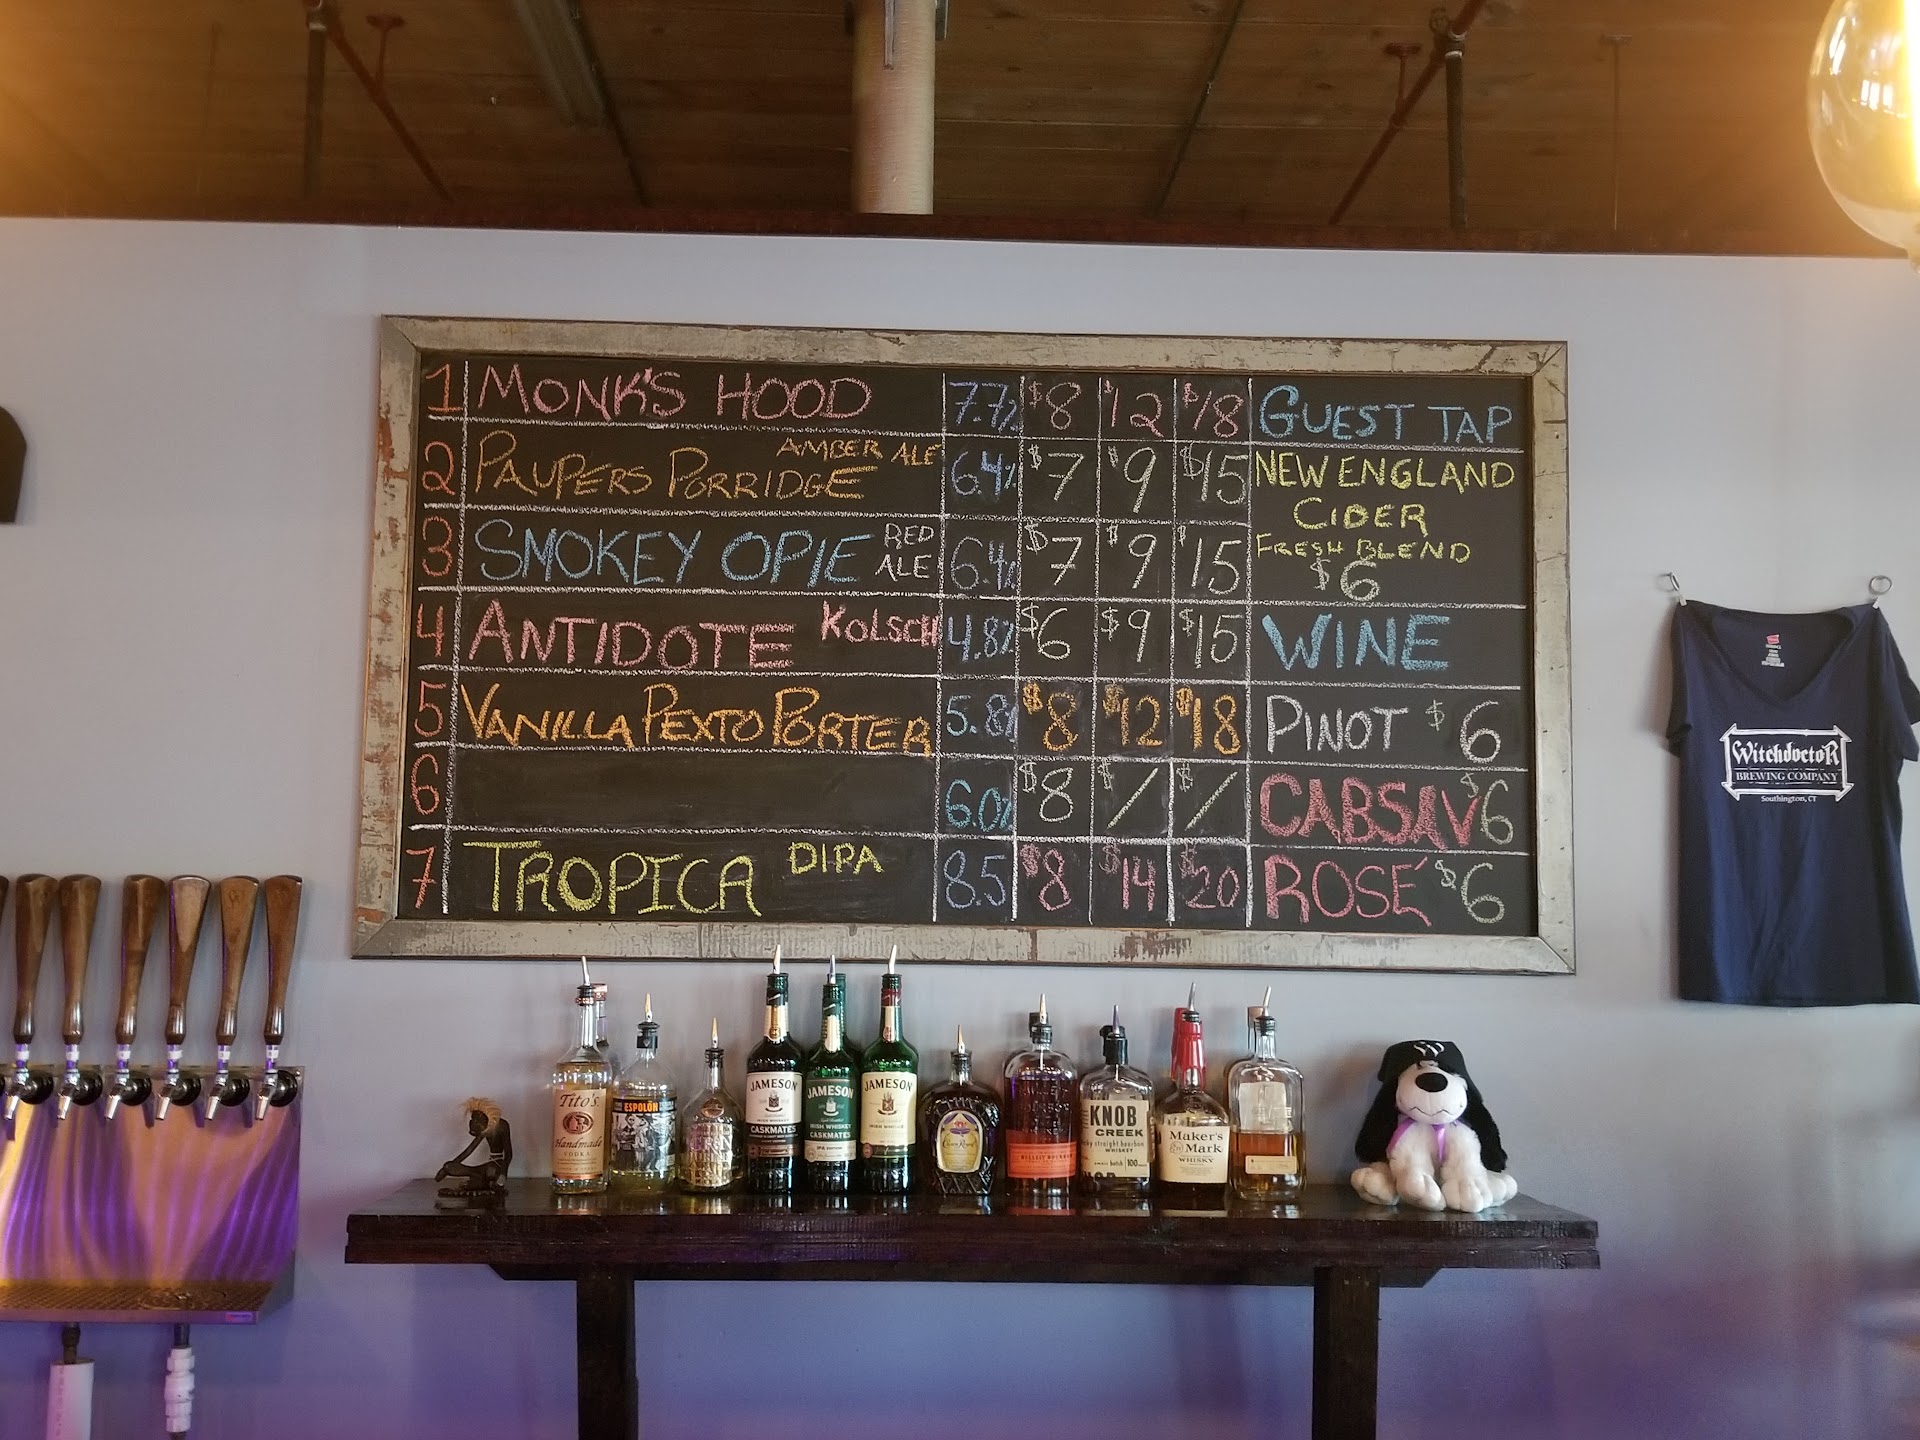 1 MONK'S HOOD 7.7% $8 $12 $18
AMBER ALE
2 PAUPERS PORRIDGE 6.4% $7 $9 $15
3 SMOKEY OPIE RED ALE 6.4% $7 $9 $15
4 ANTIDOTE KOLSCH 4.8% $6 $9 $15
5 VANILLA PEXTO PORTER 5.8% $8 $12 $18
6 6.0% $8 $/ $/
7 TROPICA DIPA 8.5 $8 $14 $20
GUEST TAP
NEW ENGLAND
CIDER
FRESH BLEND
$6
WINE
PINOT $6
CABSAV $6
ROSÉ $6
WitchdoctoR
BREWING COMPANY
Southington, CT
Tito's
Handmade
VODKA
ESPOLÒN
JAMESON
CASKMATES
JAMESON
IRISH WHISKEY
CASKMATES
IPA EDITION
JAMESON
IRISH WHISKEY
Crown Royal
BULLEIT BOURBON
KNOB
CREEK
straight bourbon
WHISKEY
small batch 100
Maker's
Mark
WHISKY